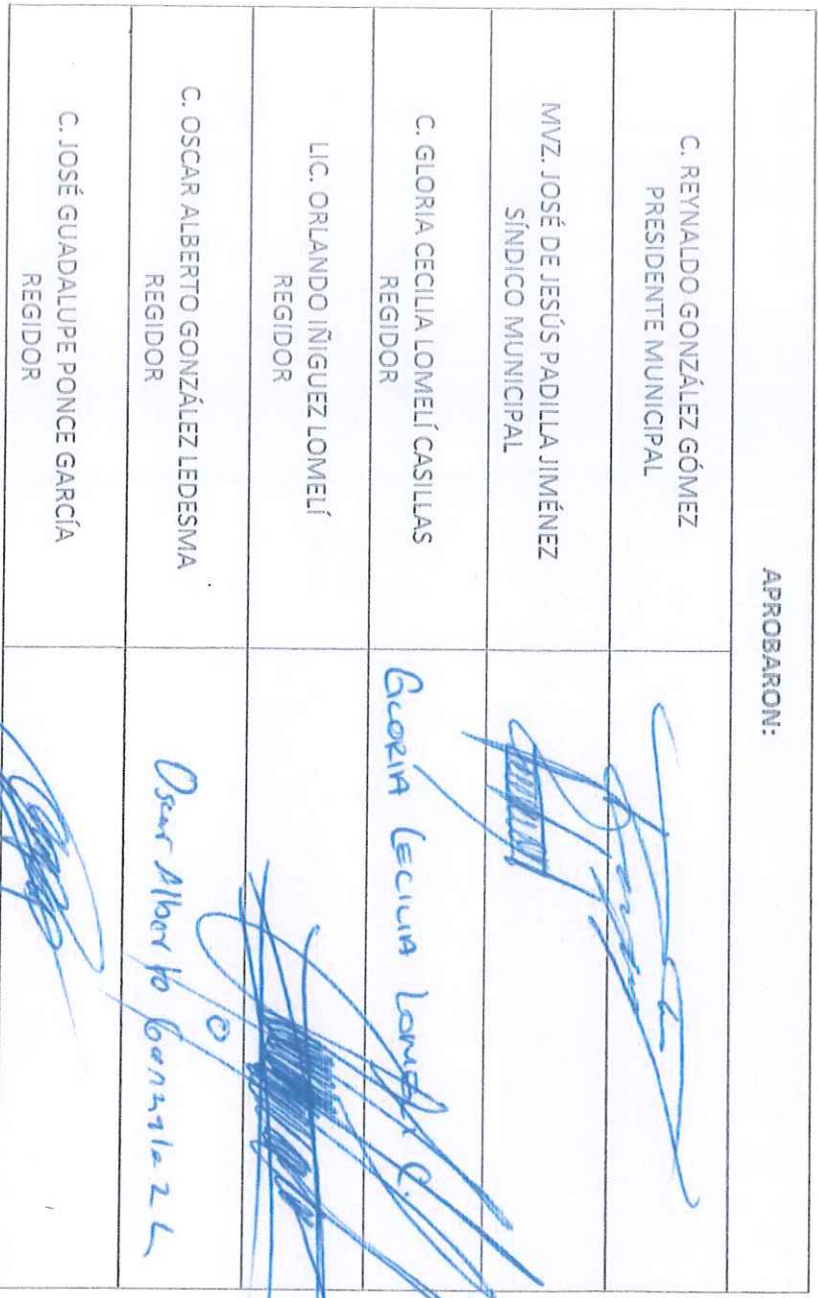 APROBARON:
C. REYNALDO GONZÁLEZ GÓMEZ
PRESIDENTE MUNICIPAL
MVZ. JOSÉ DE JESÚS PADILLA JIMÉNEZ
SÍNDICO MUNICIPAL
C. GLORIA CECILIA LOMELÍ CASILLAS
REGIDOR
GLORIA CECILIA LOMELI C.
LIC. ORLANDO IÑIGUEZ LOMELÍ
REGIDOR
C. OSCAR ALBERTO GONZÁLEZ LEDESMA
REGIDOR
Oscar Alberto Gonzalez L
C. JOSÉ GUADALUPE PONCE GARCÍA
REGIDOR